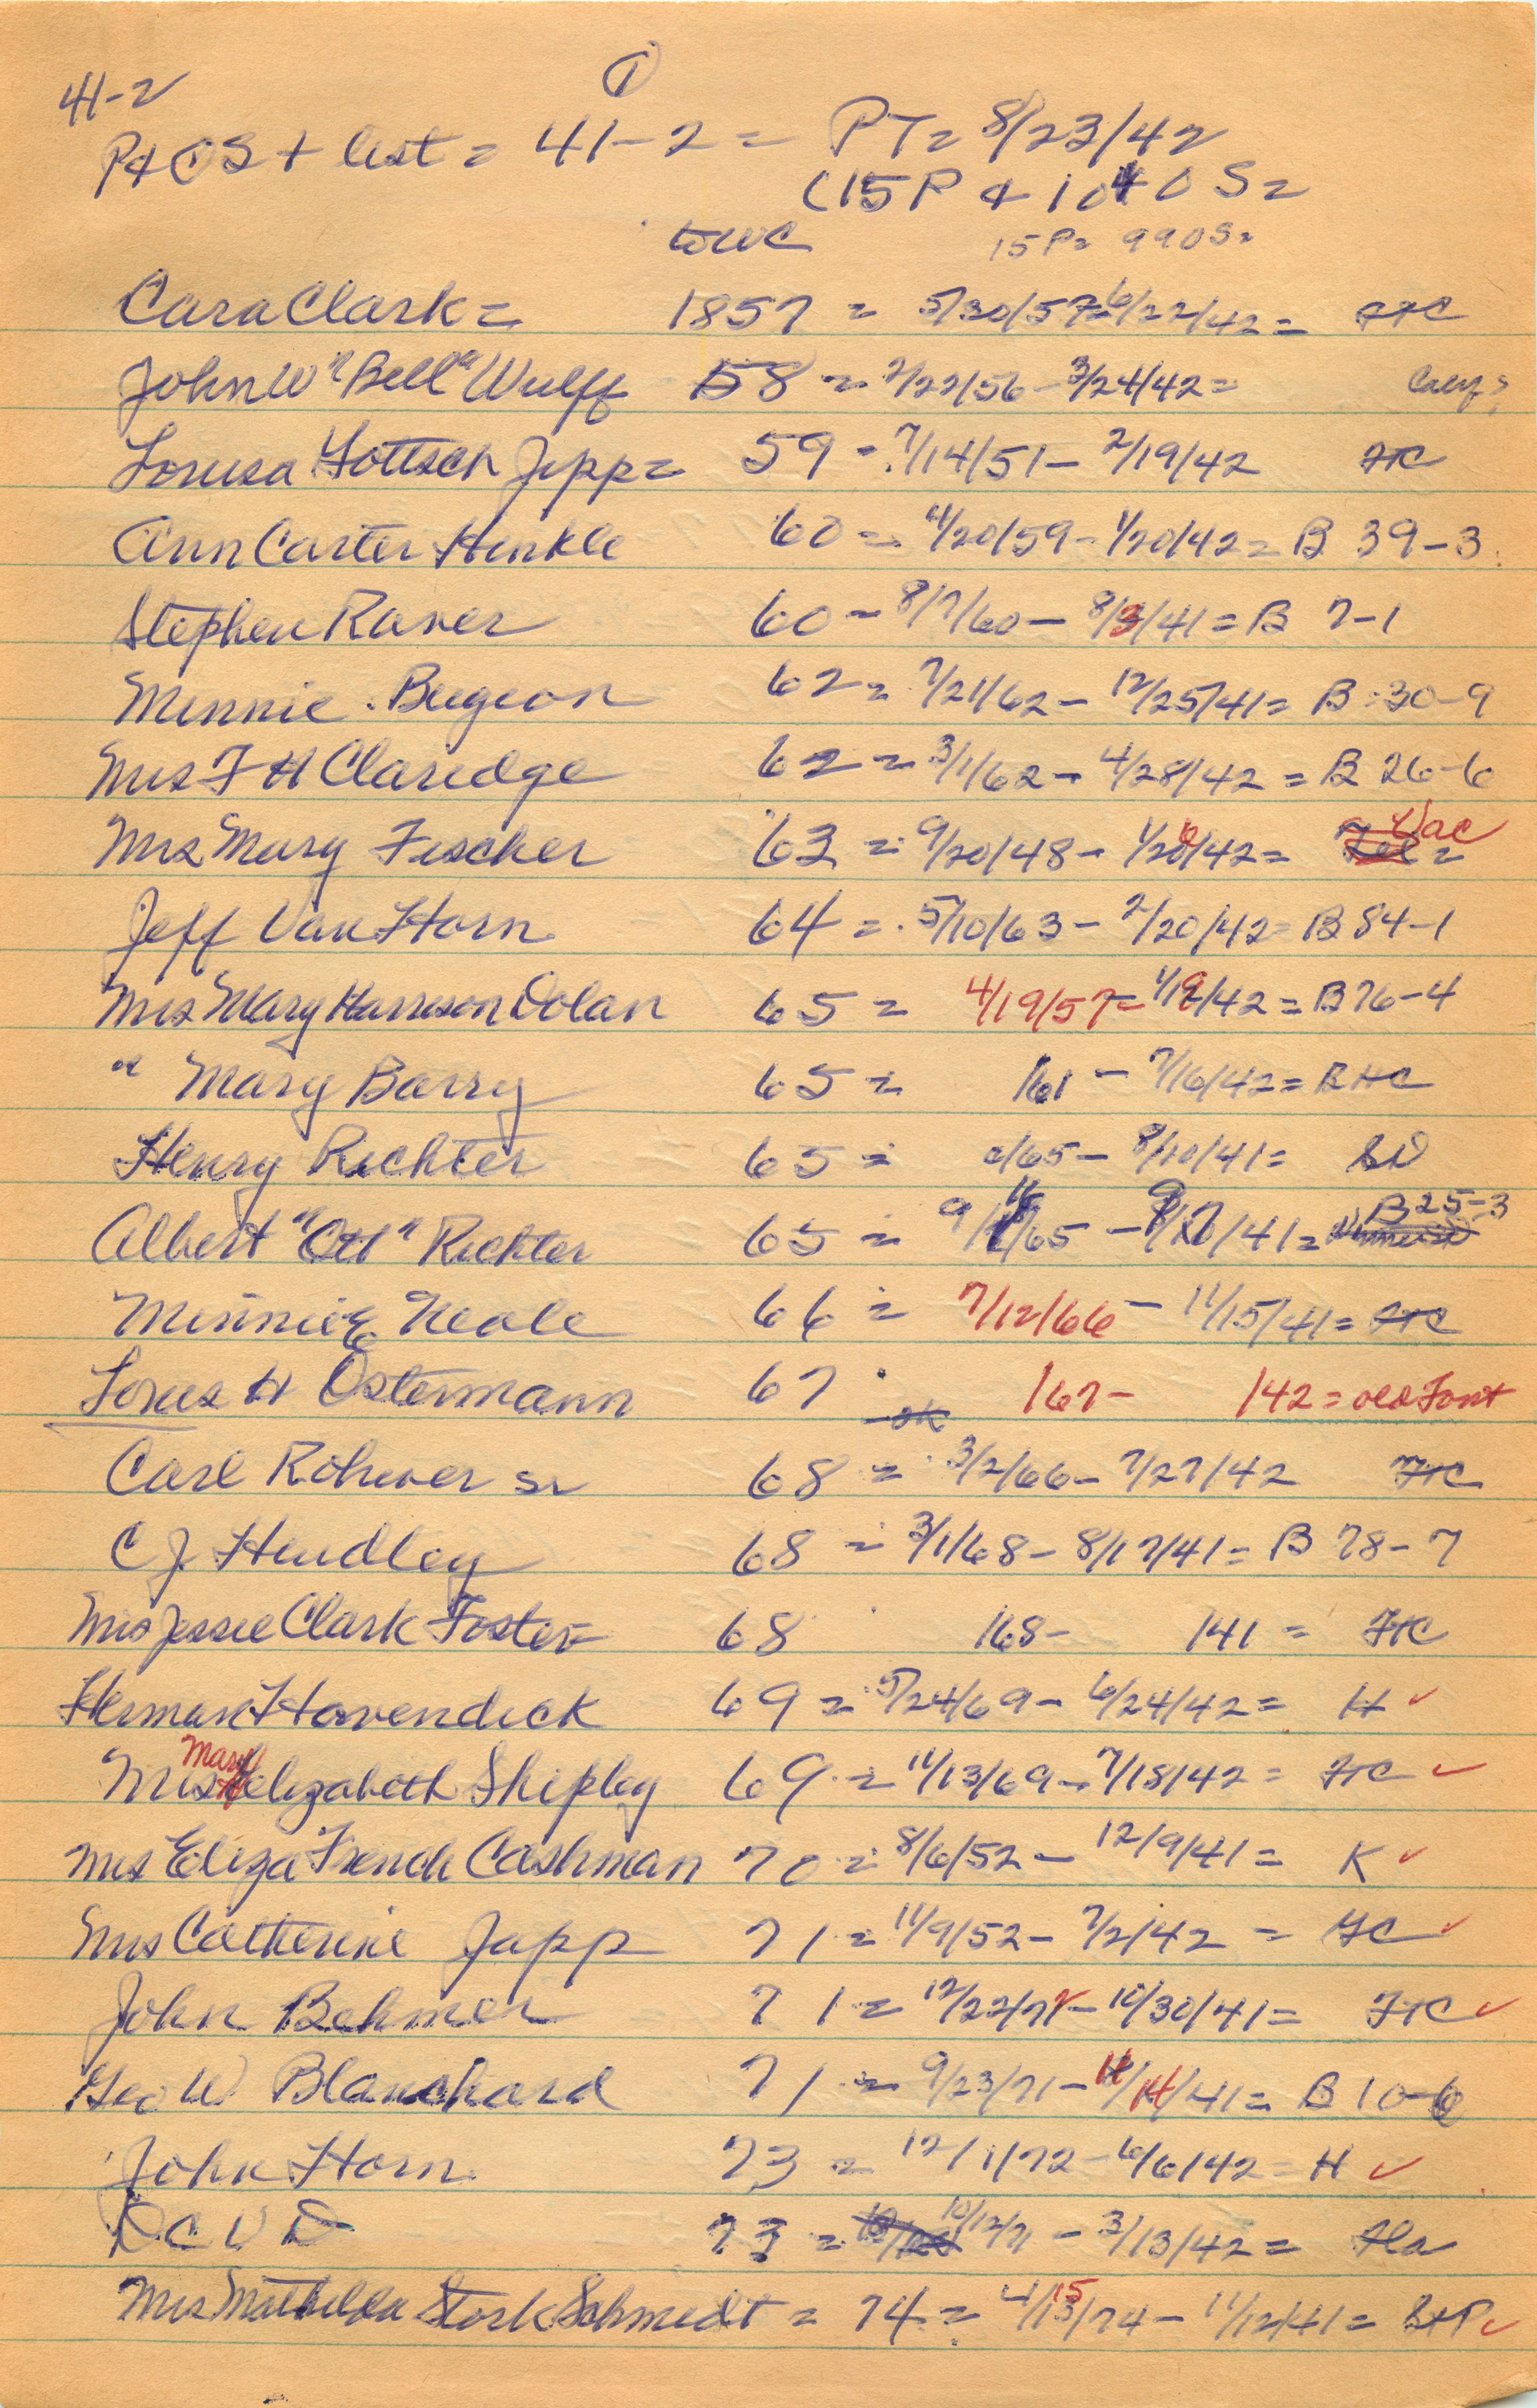 ①
41-2
P & OS + list = 41-2 = PT = 8/23/42
(15P & 10 40S =
to WC 15P = 990S =
Cara Clark = 1857 = 5/30/57 = 6/22/42 = FC
John W "Bell" Wulff 58 = 2/22/56 - 3/24/42 =
Louisa Gottsch Jipp = 59 - 7/14/51 - 2/19/42 FC
Ann Carter Henkle 60 = 4/20/59 - 1/20/42 = B 39-3
Stephen Raver 60 - 8/7/60 - 8/3/41 = B 7-1
Minnie Bugeon 62 = 7/21/62 - 12/25/41 = B 30-9
Mrs F H Claredge 62 = 3/1/62 - 4/28/42 = B 26-6
Mrs Mary Fischer 63 = 9/20/48 - 1/20/42 = Vac
Jeff Van Horn 64 = 5/10/63 - 2/20/42 = B 84-1
Mrs Mary Harrison Dolan 65 = 4/19/57 = 1/19/42 = B 76-4
" Mary Barry 65 = /61 - 7/16/42 = B HC
Henry Richter 65 = /65 - 8/10/41 =
Albert "Ott" Richter 65 = 9/ /65 - /41 = B 25-3
Minnie E Neale 66 = 7/12/66 - 11/15/41 = FC
Louis H Ostermann 67 ok /67 - /42 = old Font
Carl Rohwer Sr 68 = 3/2/66 - 7/27/42 FC
C J Hendley 68 = 3/1/68 - 8/17/41 = B 78-7
Mrs Jessee Clark Foster = 68 /68 - /41 = FC
Herman Havendick 69 = 5/24/69 - 6/24/42 = H ✓
Mrs Mary Elizabeth Shipley 69 = 11/13/69 - 7/18/42 = FC ✓
Mrs Eliza French Cashman 70 = 8/6/52 - 12/9/41 = K ✓
Mrs Catherine Japp 71 = 11/9/52 - 7/2/42 = FC ✓
John Behmer 71 = 12/22/71 - 10/30/41 = FC ✓
Geo W Blanchard 71 = 9/23/71 - 11/14/41 = B 10-6
John Horn 73 = 12/1/72 - 6/6/42 = H ✓
D C V D 73 = 10/12/71 - 3/13/42 = Fla
Mrs Mathilda Stork Schmedt = 74 = 4/15/74 - 11/12/41 = ✓